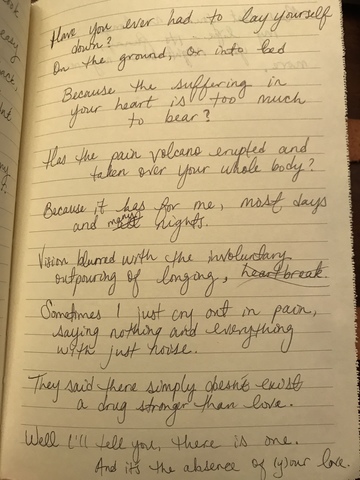 Have you ever had to lay yourself
down?
On the ground, or into bed
Because the suffering in
your heart is too much
to bear?
Has the pain volcano erupted and
taken over your whole body?
Because it has for me, most days
and many nights.
Vision blurred with the involuntary
outpouring of longing, heartbreak.
Sometimes I just cry out in pain,
saying nothing and everything
with just noise.
They said there simply doesn't exist
a drug stronger than love.
Well I'll tell you, there is one.
And it's the absence of (y)our love.